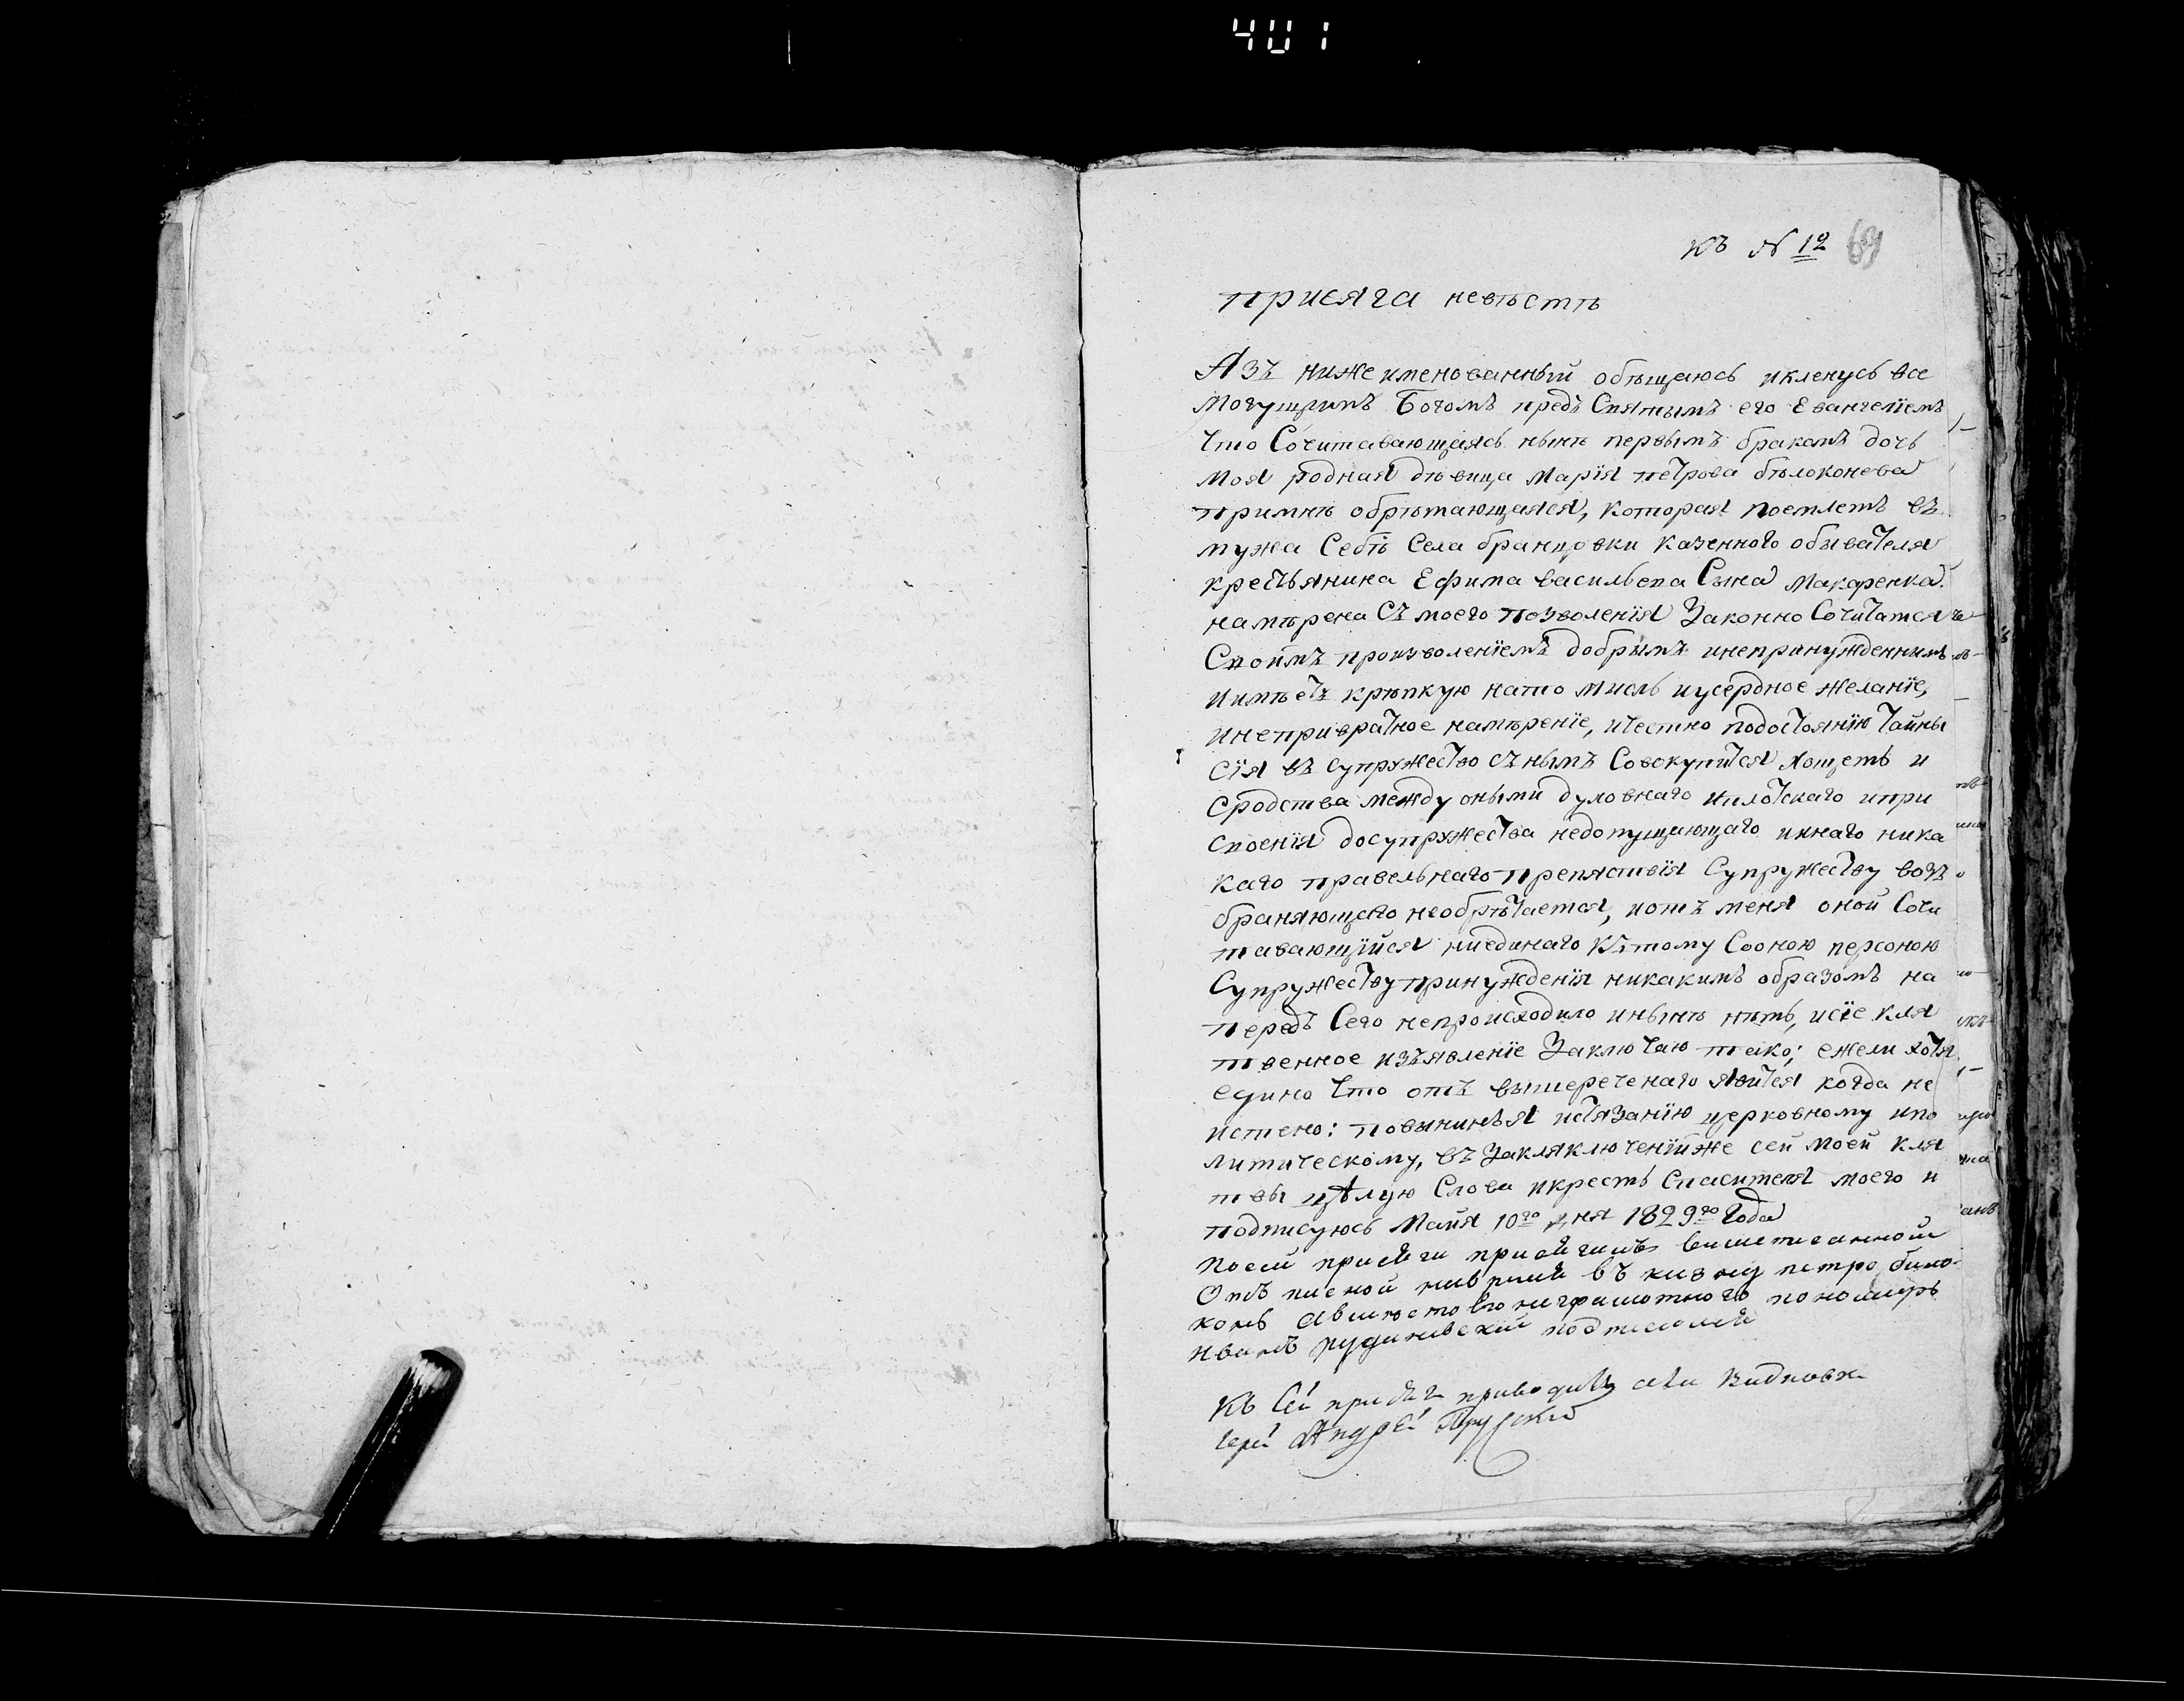 401
къ № 12 69
присяга невѣстѣ
Азъ нижеименованный обѣщаюсь икленусь все
могущимъ Богомъ предъ Святымъ его Евангелїемъ
что Сочитавающаясь нынѣ первымъ бракомъ дочь
моя родная дѣвица Марїя петрова бѣлоконева
примнѣ обрѣтающаяся, которая поемлетъ въ
мужа Себѣ Села бранцовки казенного обывателя
крестьянина Ефима васильева Сына Макаренка.
намѣрена Съ моего позволенїя Законно Сочитатся
Своимъ произволенїемъ добрымъ инепринужденнимъ
иимѣетъ крѣпкую нато мисль иусердное желанїе,
инепривратное намѣренїе, ичестно подостоянїю тайны
сїя въ супружество съ нымъ Совокупится хощетъ и
сродства между оными духовнаго иплотскаго ипри
своенїя досупружества недопущающаго иннаго ника
каго правельнаго препятствїя Супружеству воз
браняющаго необрѣтается, иотъ меня оной Сочи
тавающїйся ниединаго кътому Сооною персоною
Супружеству принужденїя никакимъ образомъ на
передъ Сего непроисходило инынѣ нѣтъ, исїе кля
твенное изъявленїе Заключаю тако; ежели хотя
едино что отъ вышереченаго явится когда не
истено: повыненъ я истязанїю церковному ипо
литическому, въ Закляключенїиже сей моей кля
твы цѣлую Слова икрестъ Спасителя моего и
подписуюсь Маия 10го дня 1829го года
Посей присяги вишеписанной
Отъ въ петро било
конь неграмотного пономарь
иванъ подписался
Къ Сей присяги приводилъ села
Іерей Андрей